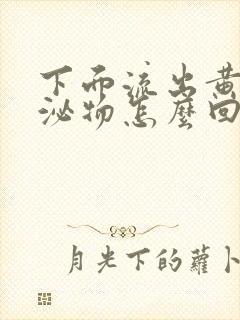 下面流出黄
泌物怎麼回
月光下的蘿卜